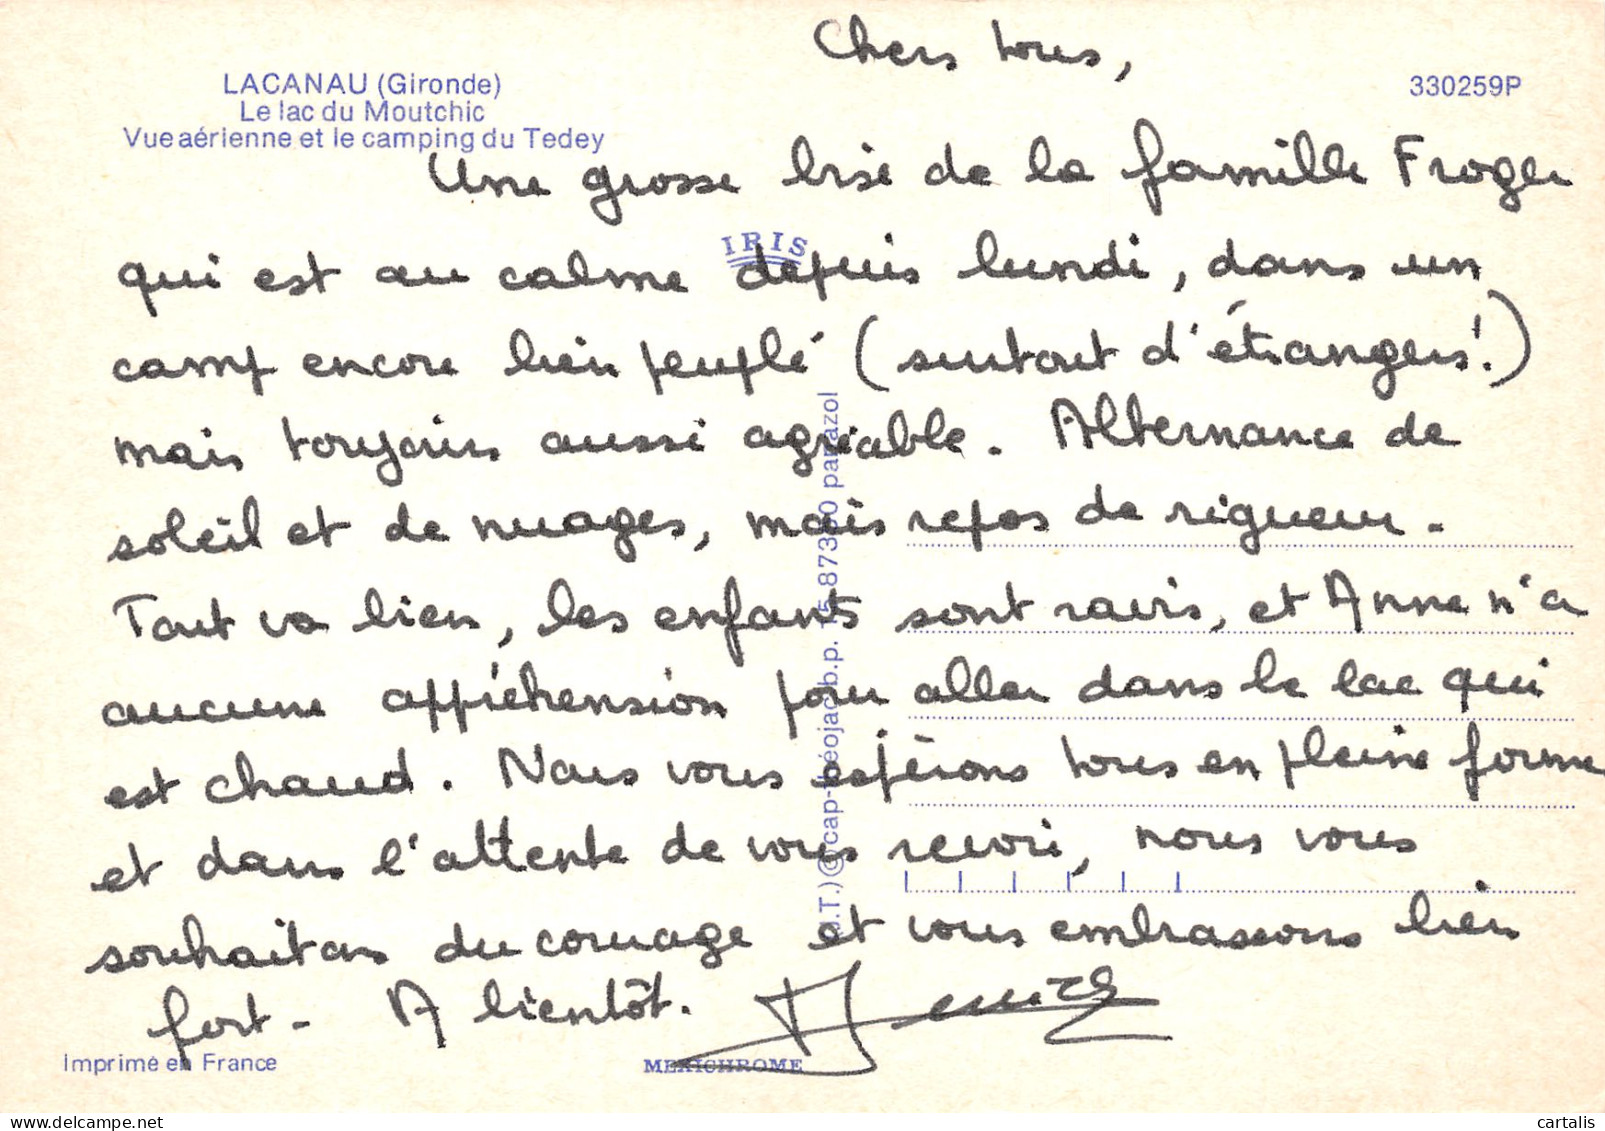 Chers tous,
LACANAU (Gironde)
Le lac du Moutchic
Vue aérienne et le camping du Tedey
330259P
Une grosse bise de la famille Froger
IRIS
qui est au calme depuis lundi, dans un
camp encore bien peuplé (surtout d'étrangers!)
mais toujours aussi agréable. Alternance de
soleil et de nuages, mais repos de rigueur.
Tout va bien, les enfants sont ravis, et Anne n'a
aucune appréhension pour aller dans le lac qui
est chaud. Nous vous espérons tous en pleine forme
et dans l'attente de vous revoir, nous vous
souhaitons du courage et vous embrassons bien
fort. A bientôt.
Imprimé en France
MEXICHROME
cap-théojac b.p. 15 87350 panazol
cartalis